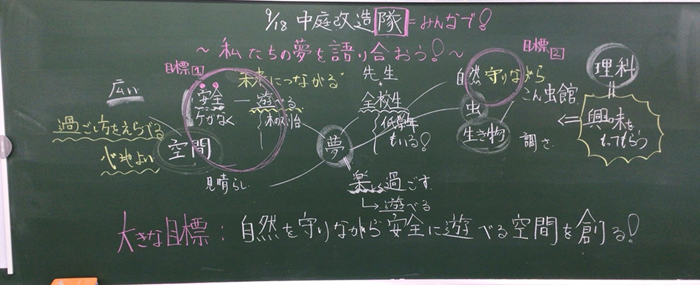 9/18 中庭改造隊=みんなで!
~私たちの夢を語り合おう!~
目標①
広い
未来につながる
安全 ― 遊べる
ケガなく
過ごし方をえらべる
心地よい
空間
見晴らし
先生
全校生
低学年
もいる!
夢
楽しく過ごす
→遊べる
目標②
自然 守りながら
虫
生き物
こん虫館
調さ
理科
興味を
もってもらう
大きな目標:自然を守りながら安全に遊べる空間を創る!